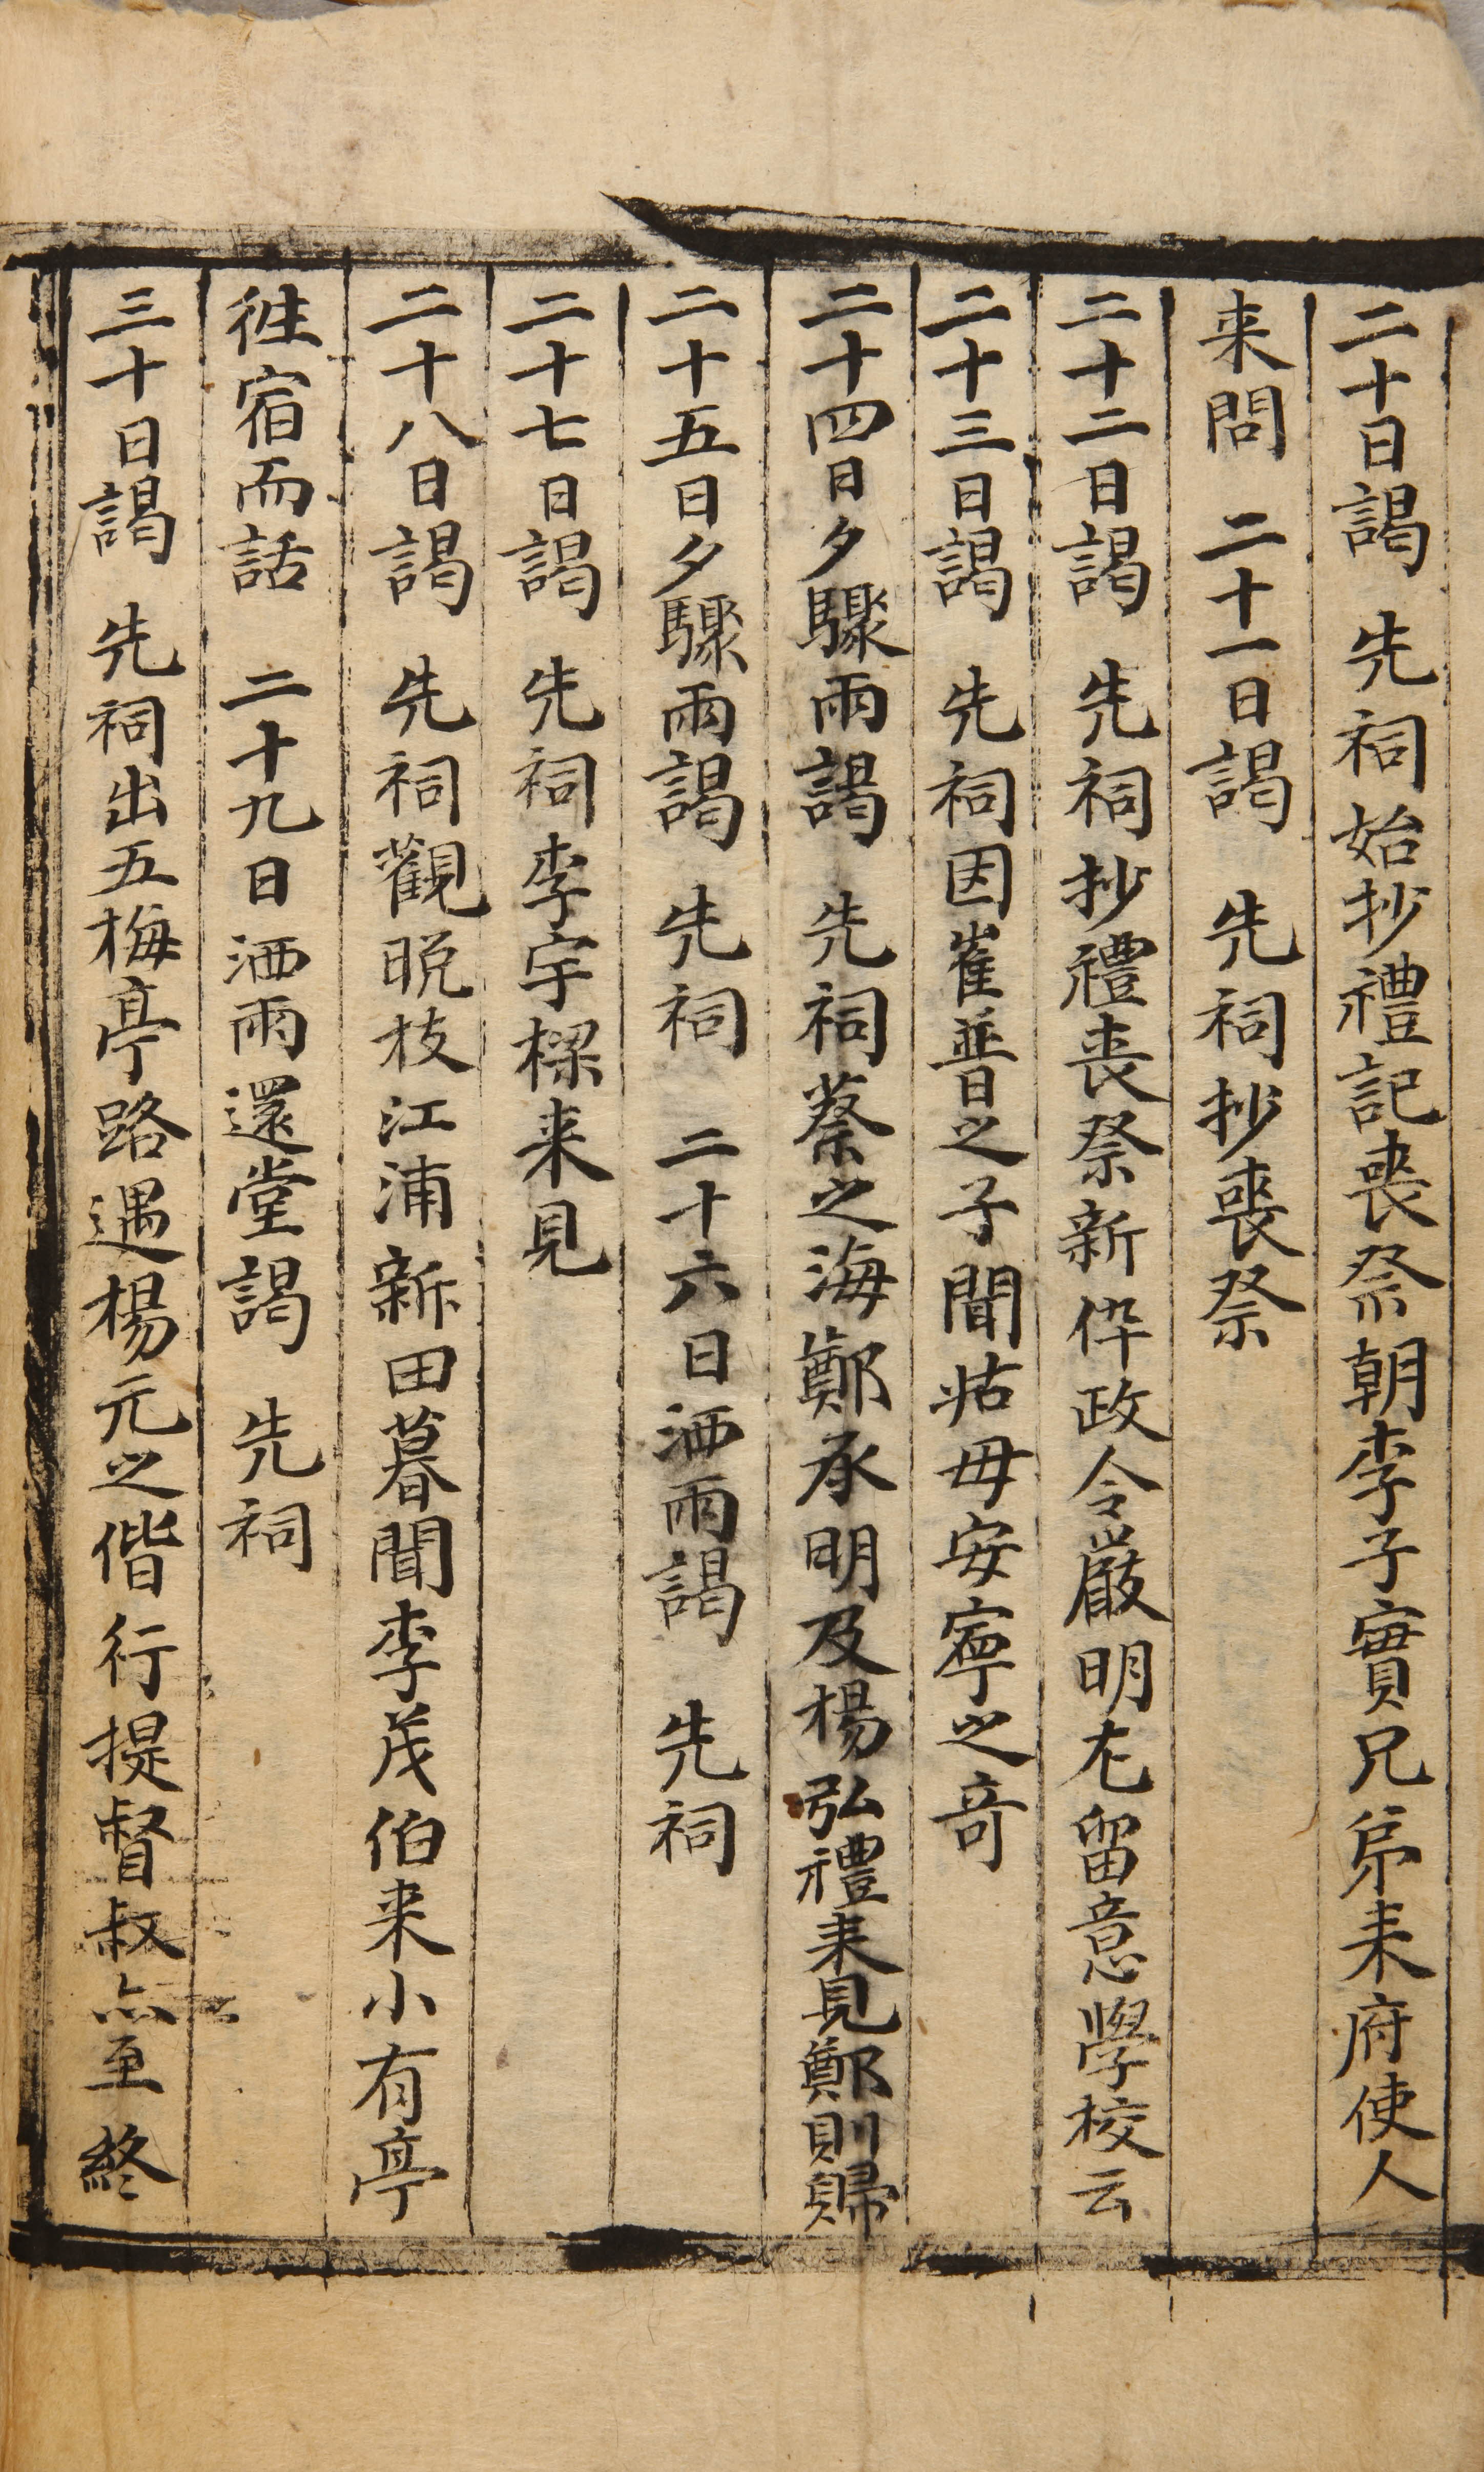 二十日謁　先祠始抄禮記喪祭朝李子實兄弟来府使人
来問　二十一日謁　先祠抄喪祭
二十二日謁　先祠抄禮喪祭新倅政令嚴明尤留意學校云
二十三日謁　先祠因崔普之子聞姑母安寧之奇
二十四日夕驟雨謁　先祠蔡之海鄭承明及楊弘禮来見鄭則歸
二十五日夕驟雨謁　先祠　二十六日洒雨謁　先祠
二十七日謁　先祠李宇樑来見
二十八日謁　先祠觀晩枝江浦新田暮聞李茂伯来小有亭
徃宿而話　二十九日洒雨還堂謁　先祠
三十日謁　先祠出五梅亭路遇楊元之偕行提督叔亦至終